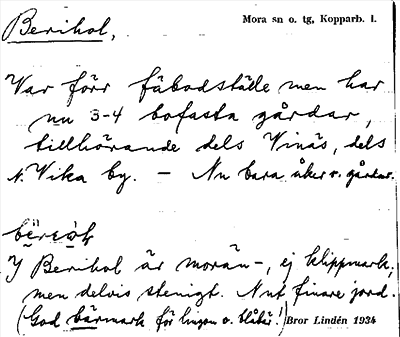 Berihol,
Mora sn o. tg, Kopparb. l.
Var förr fäbodställe men har
nu 3-4 bofasta gårdar,
tillhörande dels Vinäs, dels
N. Vika by. – Nu bara åker o. gårdar.
I Berihol är morän-, ej klippmark,
men delvis stenigt. Nut finare jord.
(God bärmark för lingon o. blåbär!) Bror Lindén 1934